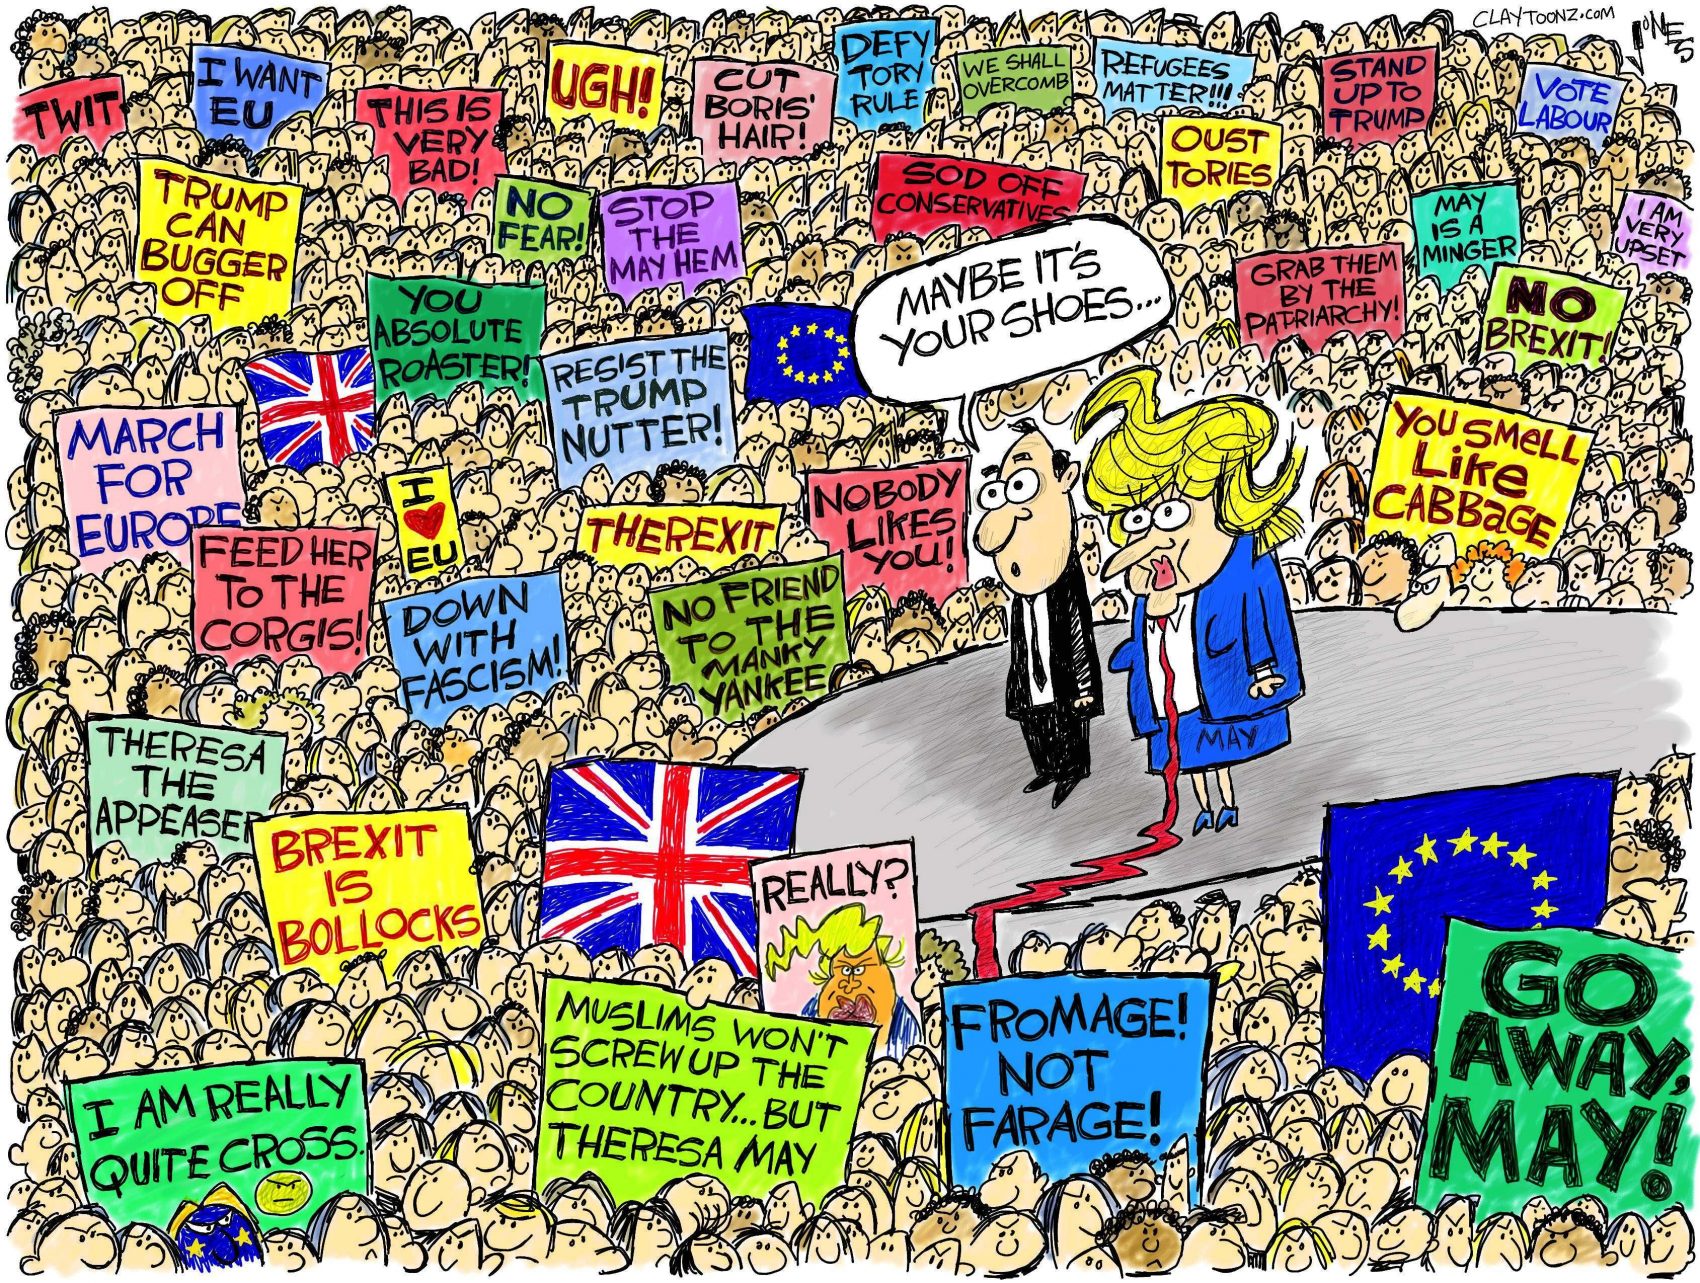 CLAYTOONZ.COM
JONES
TWIT
I WANT
EU
THIS IS
VERY
BAD!
UGH!
CUT
BORIS'
HAIR!
DEFY
TORY
RULE
WE SHALL
OVERCOMB
REFUGEES
MATTER!!!
STAND
UP TO
TRUMP
VOTE
LABOUR
TRUMP
CAN
BUGGER
OFF
NO
FEAR!
STOP
THE
MAYHEM
SOD OFF
CONSERVATIVES
OUST
TORIES
MAY
IS A
MINGER
I AM
VERY
UPSET
YOU
ABSOLUTE
ROASTER!
MAYBE IT'S
YOUR SHOES...
GRAB THEM
BY THE
PATRIARCHY!
NO
BREXIT!
RESIST THE
TRUMP
NUTTER!
MARCH
FOR
EUROPE
I
EU
THEREXIT
NOBODY
LIKES
YOU!
YOU SMELL
LIKE
CABBAGE
FEED HER
TO THE
CORGIS!
DOWN
WITH
FASCISM!
NO FRIEND
TO THE
MANKY
YANKEE
MAY
THERESA
THE
APPEASER
BREXIT
IS
BOLLOCKS
REALLY?
I AM REALLY
QUITE CROSS.
MUSLIMS WON'T
SCREW UP THE
COUNTRY...BUT
THERESA MAY
FROMAGE!
NOT
FARAGE!
GO
AWAY,
MAY!